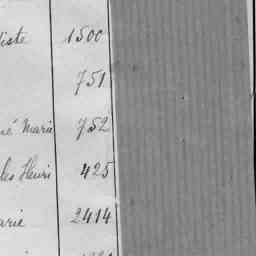 iste 1500
751
né Marie 752
les Henri 425
arie 2414